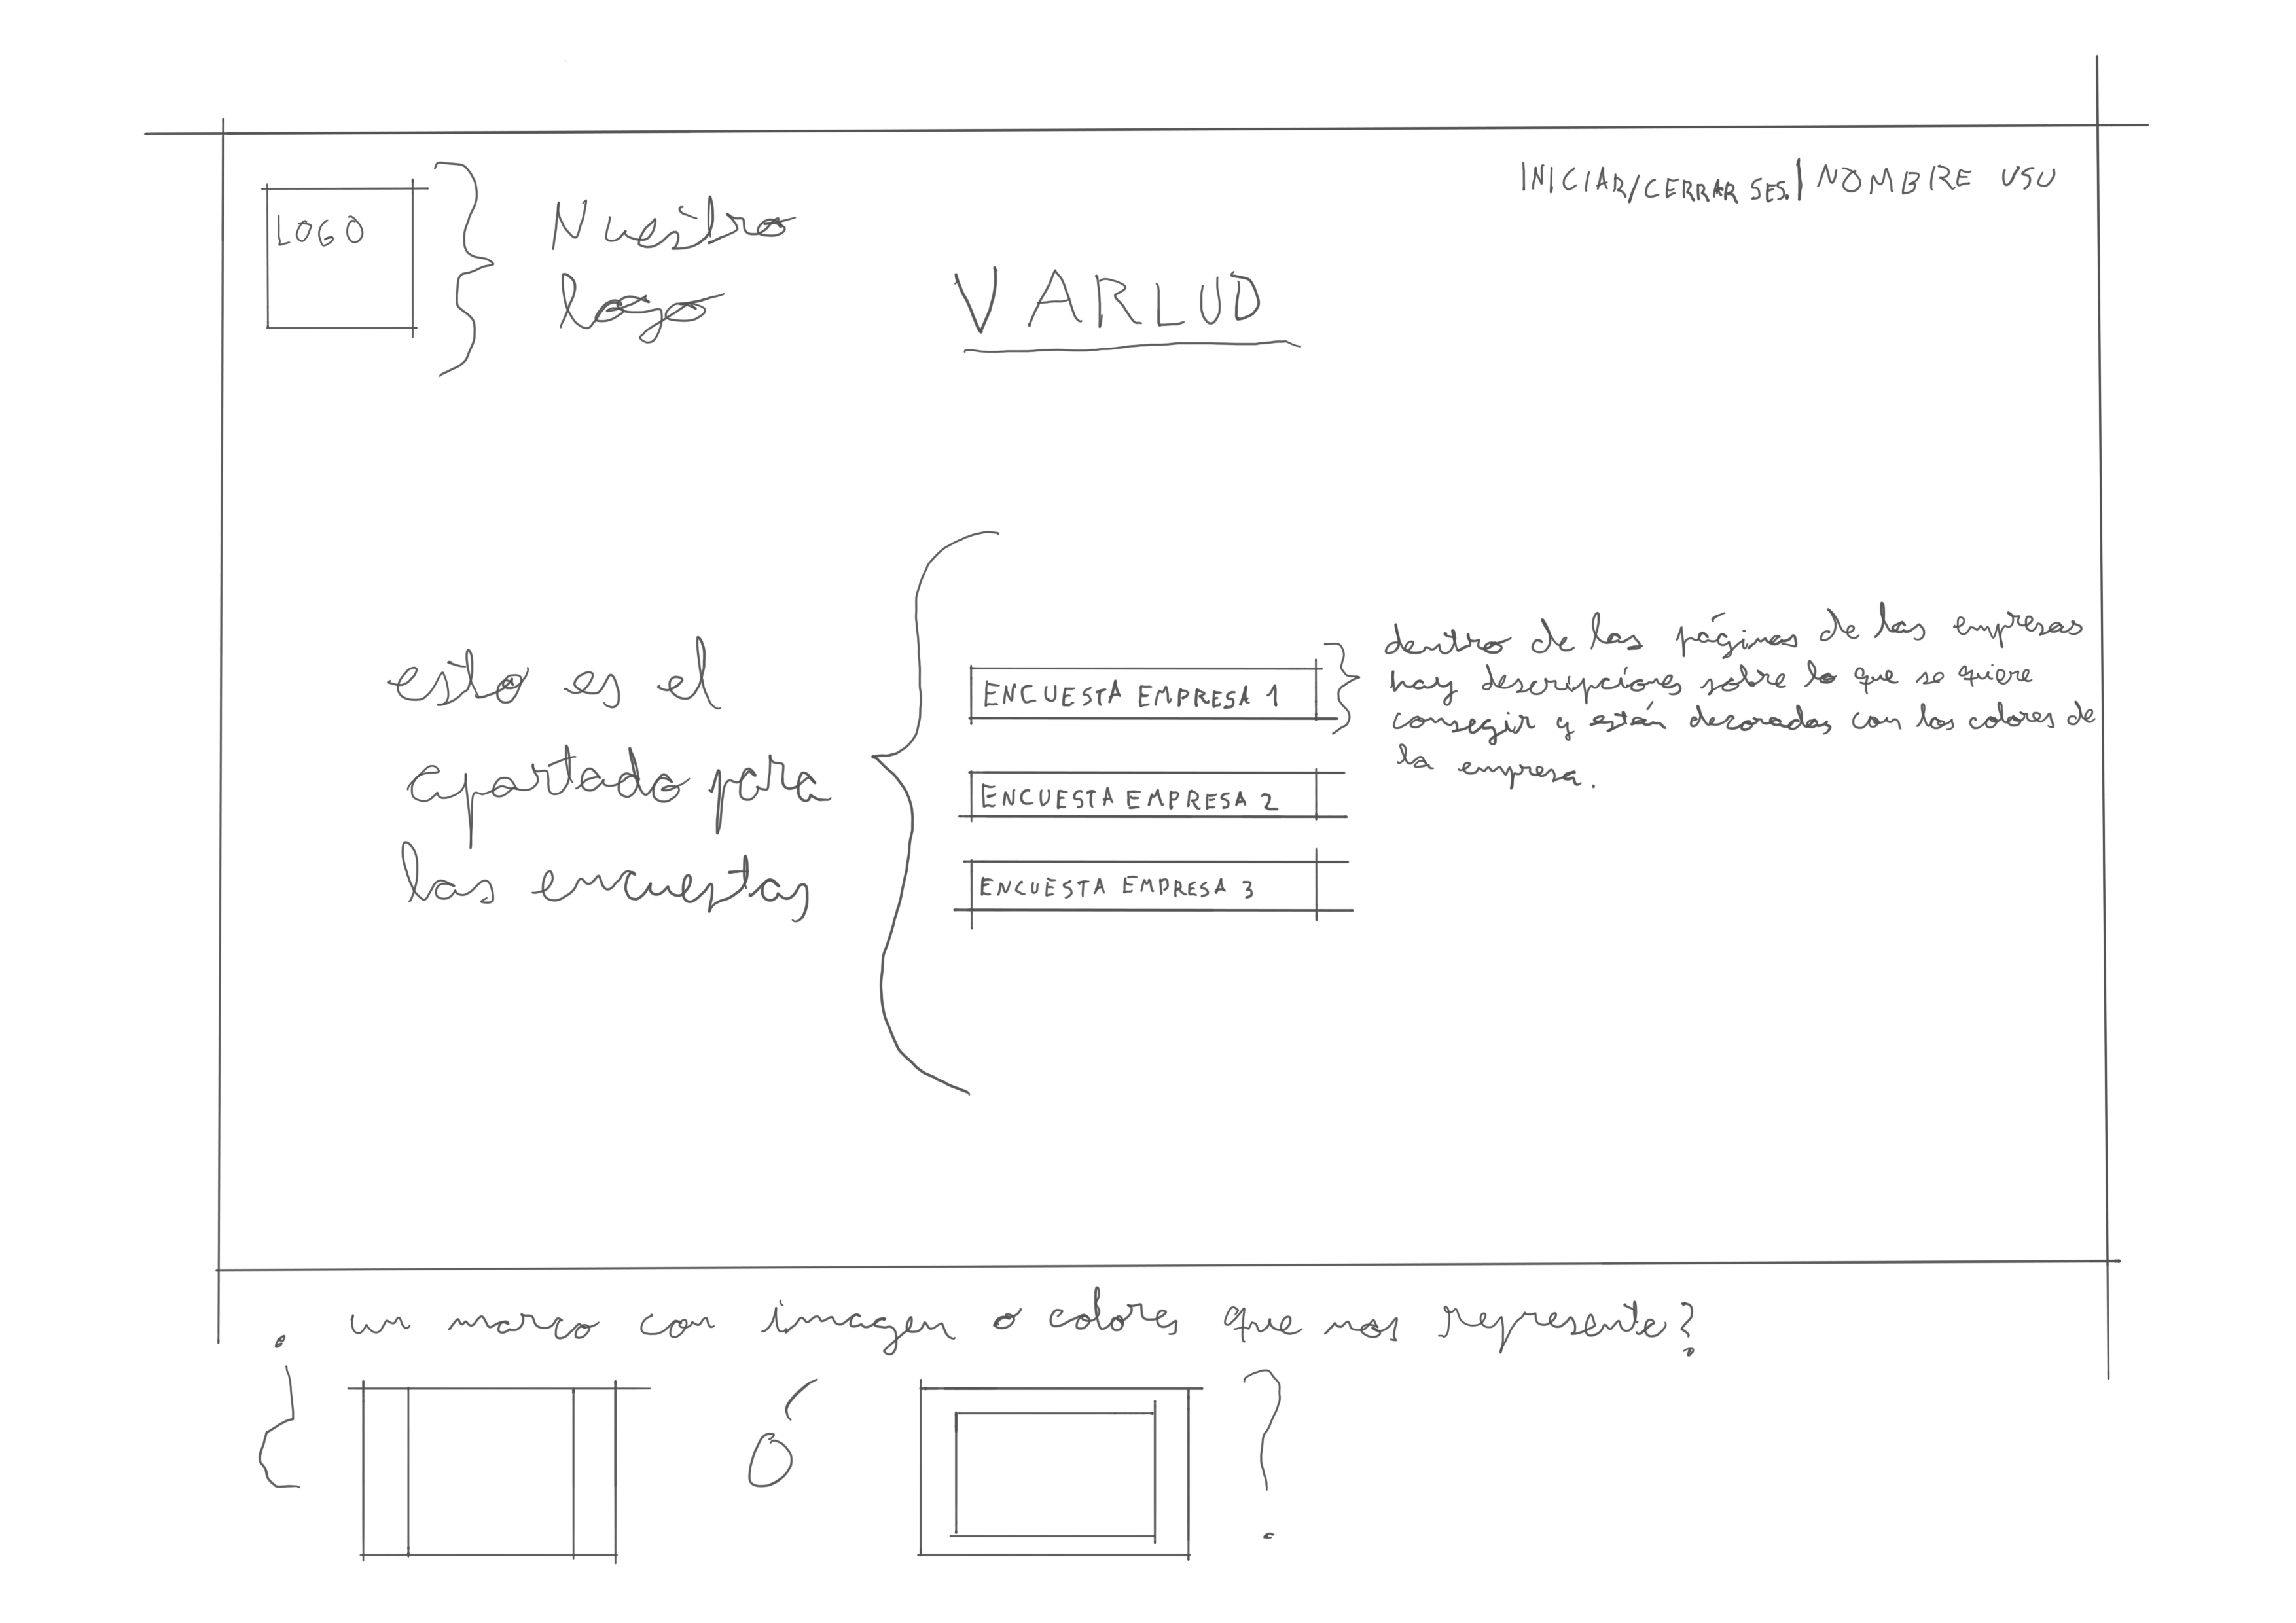 INICIAR/CERRAR SES. | NOMBRE USU
LOGO
Nuestro
logo
VARLUD
esto es el
apartado para
las encuestas
ENCUESTA EMPRESA 1
ENCUESTA EMPRESA 2
ENCUESTA EMPRESA 3
dentro de las páginas de las empresas
hay descripciones sobre lo que se quiere
consegir y están decoradas con los colores de
la empresa.
¿ un marco con imagen o colores que nos represente?
¿ ó ?